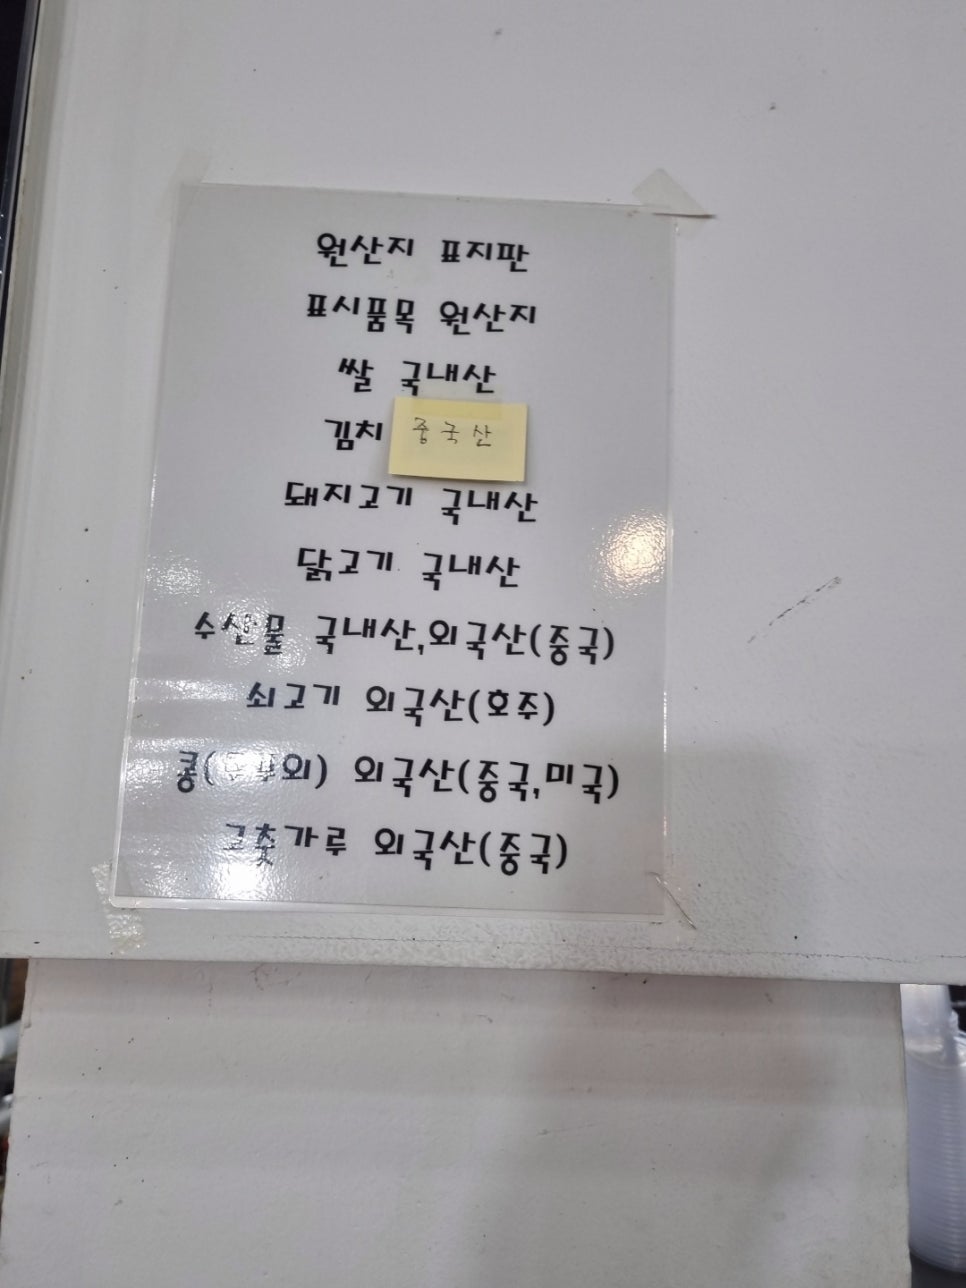 원산지 표지판
표시품목 원산지
쌀 국내산
김치 중국산
돼지고기 국내산
닭고기 국내산
수산물 국내산,외국산(중국)
쇠고기 외국산(호주)
콩(두부외) 외국산(중국,미국)
고춧가루 외국산(중국)